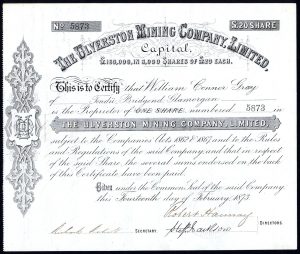 No 5873
£20 SHARE
THE ULVERSTON MINING COMPANY, LIMITED.
Capital,
£160,000, IN 8,000 SHARES OF £20 EACH.
This is to Certify that William Connor Gray
of Bridgend Glamorgan
is the Proprietor of ONE SHARE, numbered 5873 in
THE ULVERSTON MINING COMPANY, LIMITED,
subject to the Companies Acts, 1862 & 1867, and to the Rules
and Regulations of the said Company, and that in respect
of the said Share, the several sums endorsed on the back
of this Certificate have been paid.
Given under the Common Seal of the said Company
this Fourteenth day of February 1873.
Robert Hannay
DIRECTORS.
SECRETARY.